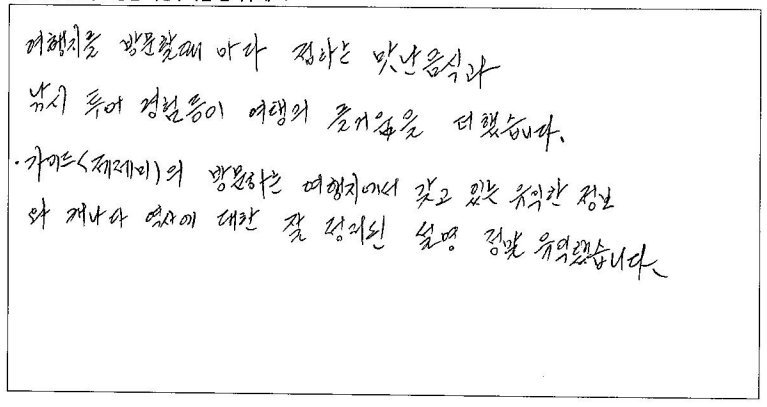 여행지를 방문할때 마다 접하는 맛난음식과
낚시 투어 경험등이 여행의 즐거움을 더했습니다.
·가이드(제레미)의 방문하는 여행지에서 갖고 있는 유익한 정보
와 캐나다 역사에 대한 잘 정리된 설명 정말 유익했습니다.